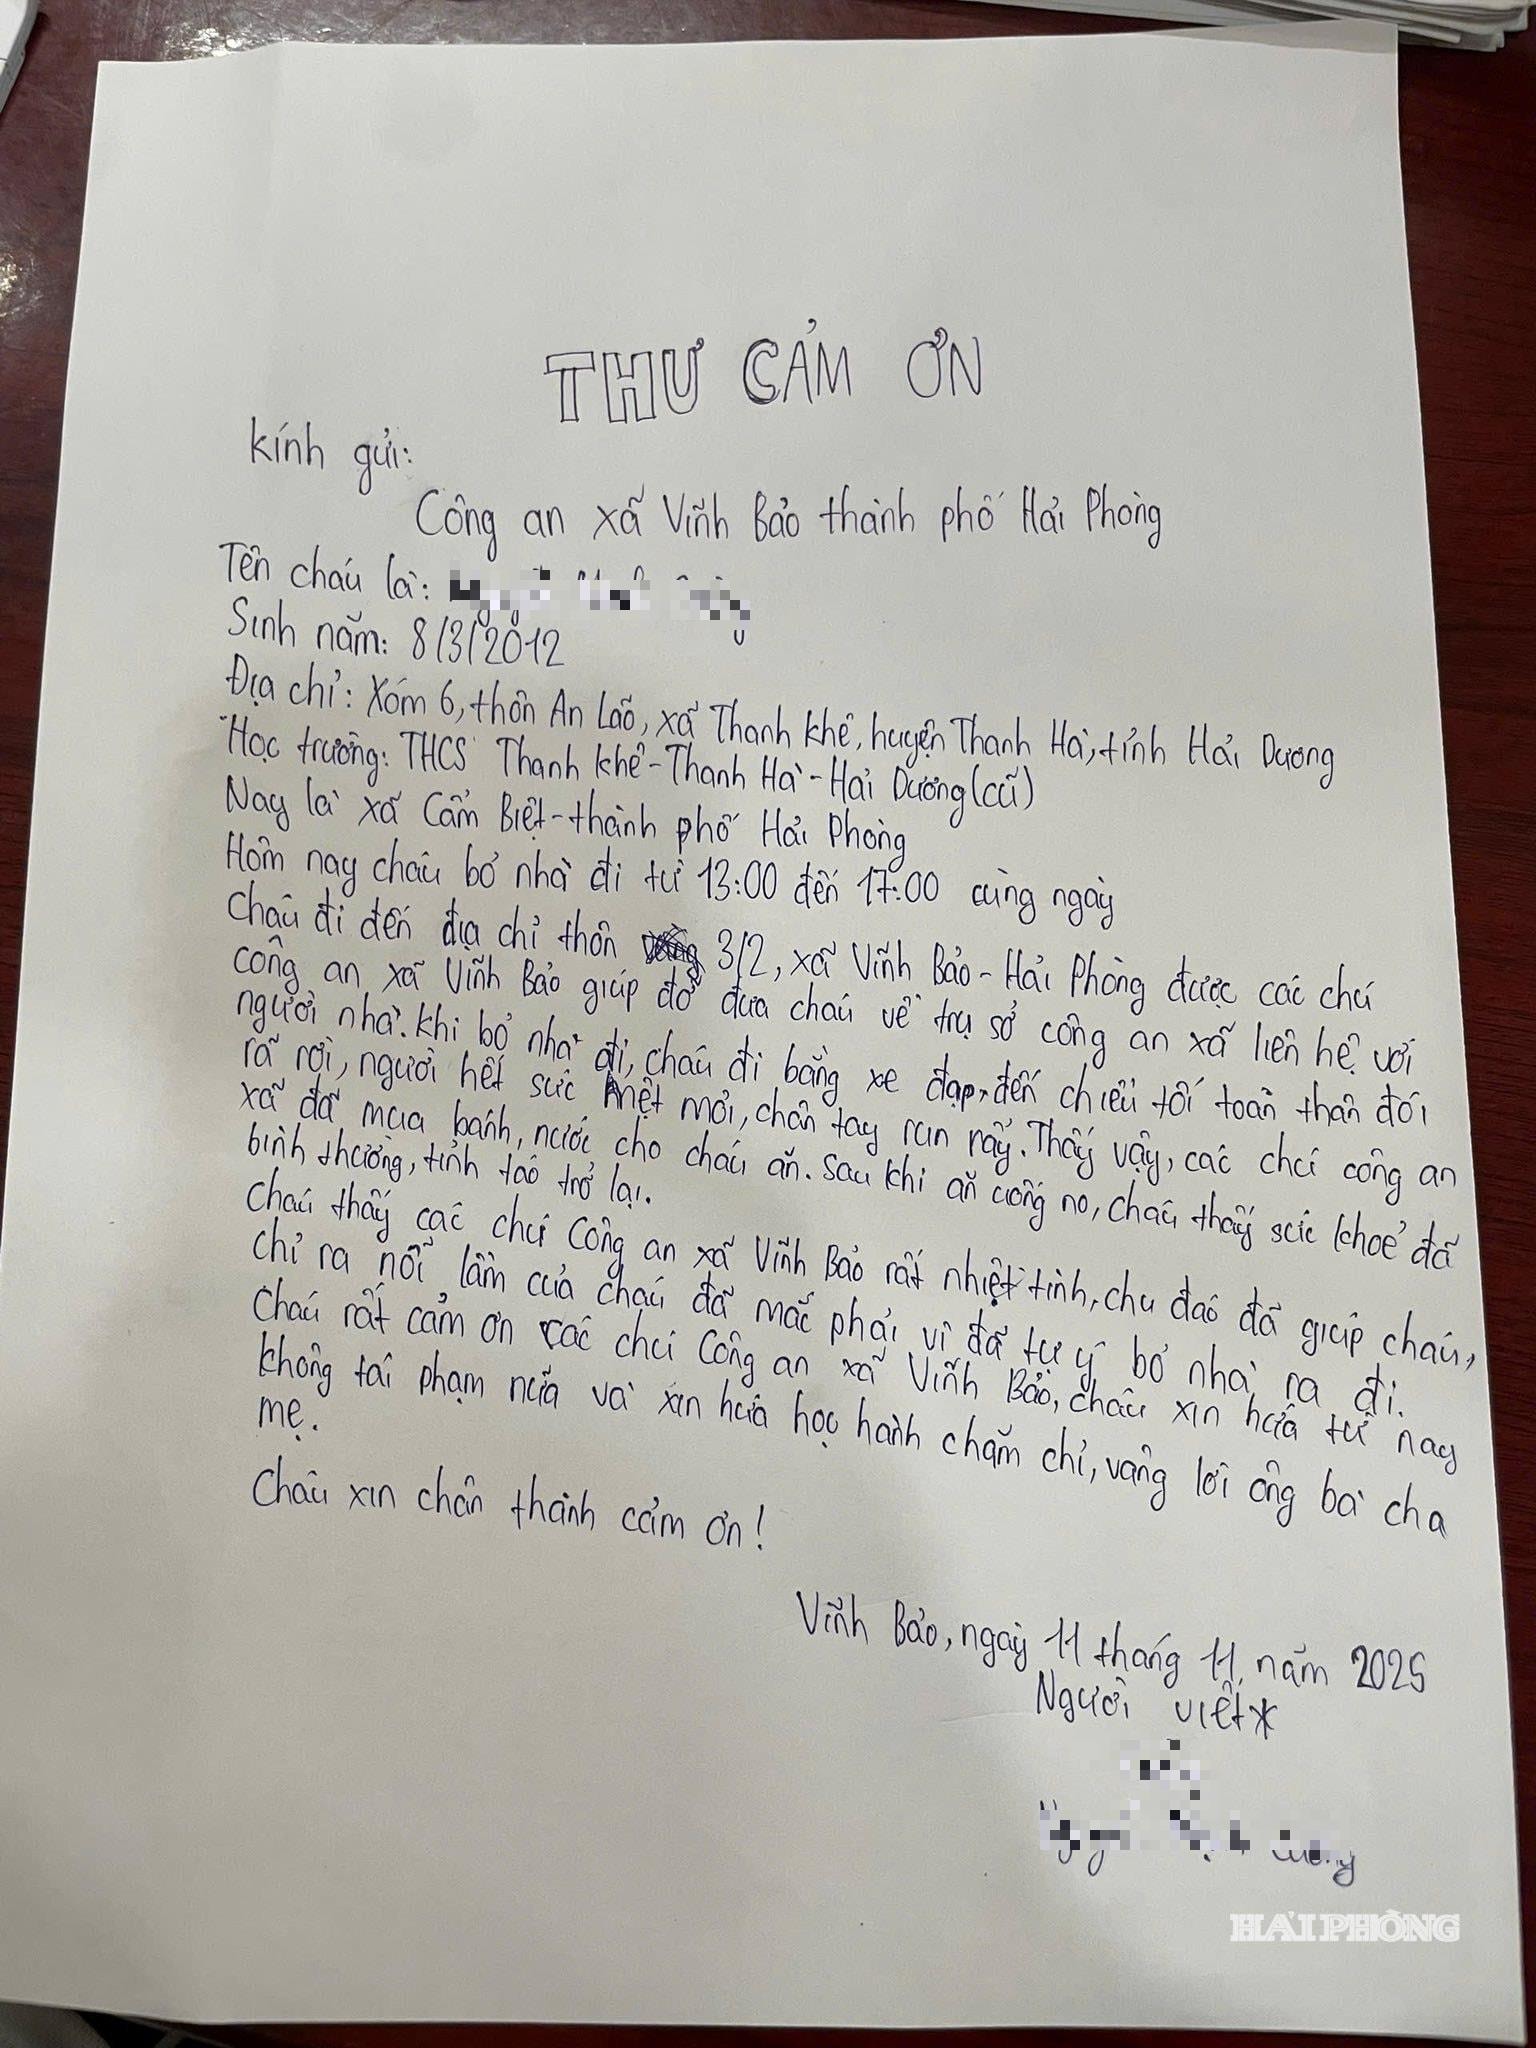 THƯ CẢM ƠN
kính gửi:
Công an xã Vĩnh Bảo thành phố Hải Phòng
Tên cháu là:
Sinh năm: 8/3/2012
Địa chỉ: Xóm 6, thôn An Lão, xã Thanh khê, huyện Thanh Hà, tỉnh Hải Dương
Học trường: THCS Thanh khê - Thanh Hà - Hải Dương (cũ)
Nay là xã Cẩm Biệt - thành phố Hải Phòng
Hôm nay cháu bỏ nhà đi từ 13:00 đến 17:00 cùng ngày
Cháu đi đến địa chỉ thôn 3/2, xã Vĩnh Bảo - Hải Phòng được các chú
công an xã Vĩnh Bảo giúp đỡ đưa cháu về trụ sở công an xã liên hệ với
người nhà. khi bỏ nhà đi, cháu đi bằng xe đạp, đến chiều tối toàn thân đói
rã rời, người hết sức mệt mỏi, chân tay run rẩy. Thấy vậy, các chú công an
xã đã mua bánh, nước cho cháu ăn. Sau khi ăn uống no, cháu thấy sức khoẻ đã
bình thường, tỉnh táo trở lại.
Cháu thấy các chú Công an xã Vĩnh Bảo rất nhiệt tình, chu đáo đã giúp cháu,
chỉ ra nỗi lầm của cháu đã mắc phải vì đã tự ý bỏ nhà ra đi.
Cháu rất cảm ơn các chú Công an xã Vĩnh Bảo, cháu xin hứa từ nay
không tái phạm nữa và xin hứa học hành chăm chỉ, vâng lời ông bà cha
mẹ.
Cháu xin chân thành cảm ơn!
Vĩnh Bảo, ngày 11 tháng 11 năm 2025
Người viết
HẢI PHÒNG